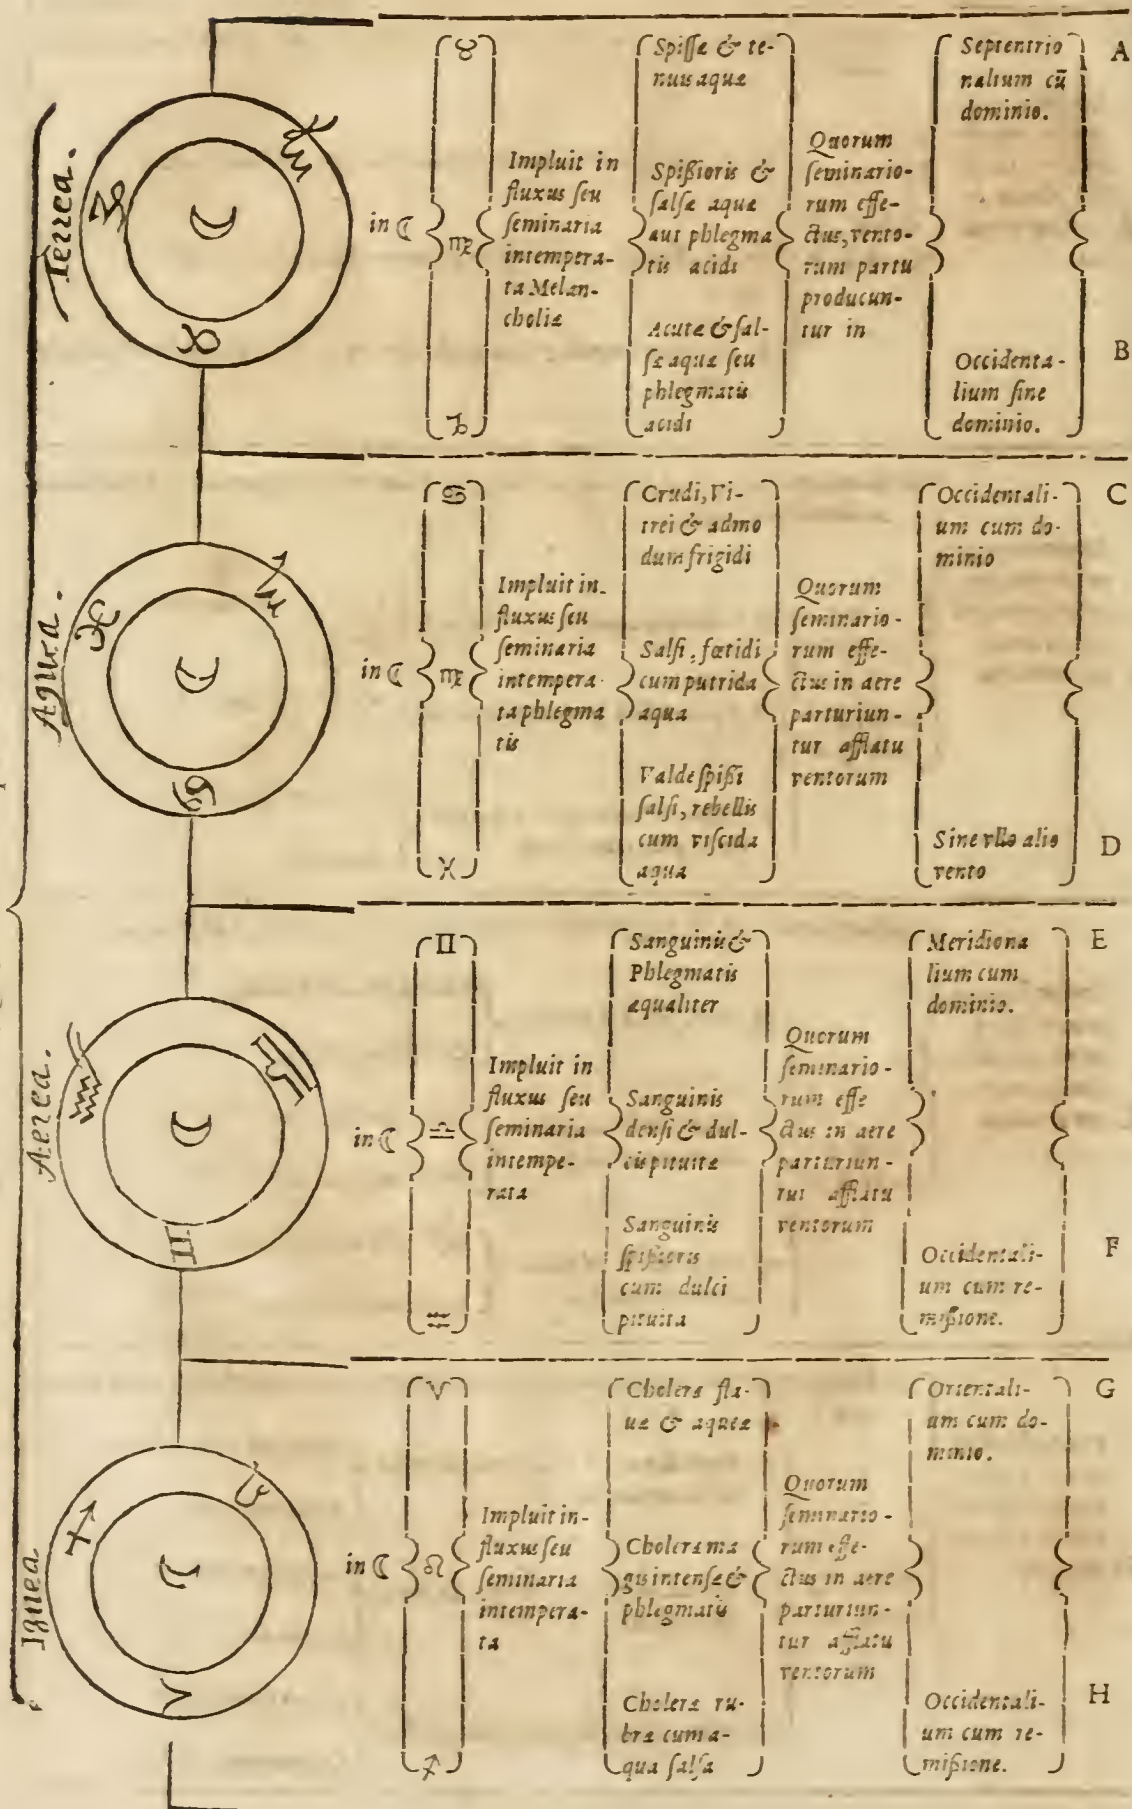 Terrea.
in ☾
♉
♍
♑
Impluit in
fluxus seu
seminaria
intempera-
ta Melan-
choliæ
Spissæ & te-
nuis aquæ
Spißioris &
salsæ aquæ
aut phlegma
tis acidi
Acutæ & sal-
sæ aquæ seu
phlegmatis
acidi
Quorum
seminario-
rum effe-
ctus, vento-
rum partu
producun-
tur in
Septentrio
nalium cū
dominio.
Occidenta-
lium sine
dominio.
A
B
Aquea.
in ☾
♋
♍
♓
Impluit in-
fluxus seu
seminaria
intempera-
ta phlegma
tis
Crudi, Vi-
trei & admo
dum frigidi
Salsi, fœtidi
cum putrida
aqua
Valde spißi
salsi, rebellis
cum viscida
aqua
Quorum
seminario-
rum effe-
ctus in aere
parturiun-
tur afflatu
ventorum
Occidentali-
um cum do-
minio
Sine vllo alio
vento
C
D
Aerea.
in ☾
♊
♎
♒
Impluit in
fluxus seu
seminaria
intempe-
rata
Sanguinis &
Phlegmatis
æqualiter
Sanguinis
densi & dul-
cis pituitæ
Sanguinis
spißioris
cum dulci
pituita
Quorum
seminario-
rum effe
ctus in aere
parturiun-
tur afflatu
ventorum
Meridiona
lium cum
dominio.
Occidentali-
um cum re-
mißione.
E
F
Ignea
in ☾
♈
♌
♐
Impluit in-
fluxus seu
seminaria
intempera-
ta
Choleræ fla-
uæ & aqueæ
Choleræ ma
gis intensæ &
phlegmatis
Choleræ ru-
bræ cum a-
qua salsa
Quorum
seminario-
rum effe-
ctus in aere
parturiun-
tur afflatu
ventorum
Orientali-
um cum do-
minio.
Occidentali-
um cum re-
mißione.
G
H